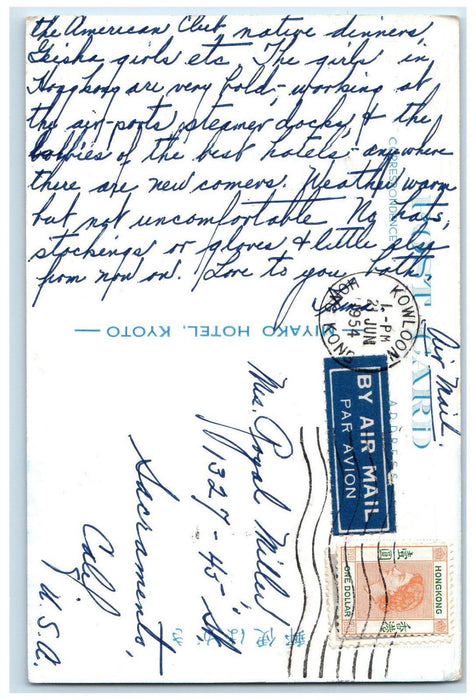 the American Club native dinners,
Geisha girls etc The girls in
Hongkong are very bold, - working at
the air-ports, steamer docks, & the
lobbies of the best hotels - anywhere
there are new comers. Weather warm
but not uncomfortable No hats,
stockings or gloves & little else
from now on. Love to you both,
MIYAKO HOTEL, KYOTO
CORRESPONDENCE
POST CARD
ADDRESS
Air Mail.
KOWLOON
1 - PM
21 JUN
1954
HONG KONG
BY AIR MAIL
PAR AVION
HONGKONG
ONE DOLLAR
香港
壹圓
Mrs. Royal Miller
1327 - 45" St
Sacramento,
Calif
U.S.A.
郵便はがき